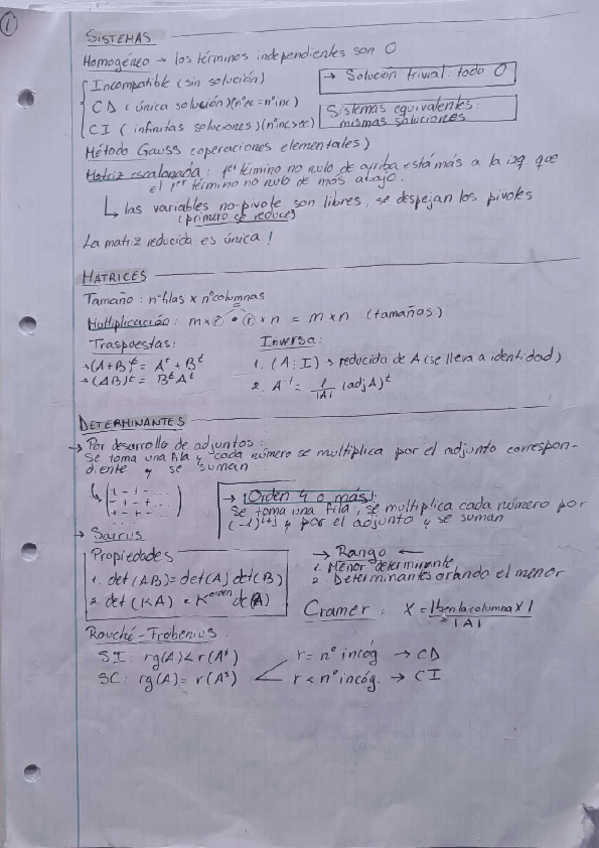 1
SISTEMAS
Homogéneo → los términos independientes son 0
Incompatible (sin solución)
→ Solución trivial: todo 0
CD (única solución)(nºec=nºinc)
CI (infinitas soluciones)(nºinc>ec)
Sistemas equivalentes:
mismas soluciones
Método Gauss (operaciones elementales)
Matriz escalonada: 1er término no nulo de arriba está más a la izq que
el 1er término no nulo de más abajo.
↳ las variables no-pivote son libres, se despejan los pivotes
(primero se reduce)
La matriz reducida es única!
MATRICES
Tamaño: nºfilas x nºcolumnas
Multiplicación: m x r · r x n = m x n (tamaños)
Traspuestas:
→(A+B)^t = A^t + B^t
→(AB)^t = B^t A^t
Inversa:
1. (A:I) → reducida de A (se lleva a identidad)
2. A^-1 = 1/|A| (adj A)^t
DETERMINANTES
→ Por desarrollo de adjuntos:
Se toma una fila y cada número se multiplica por el adjunto correspon-
diente y se suman
→ ¡Orden 4 o más!:
Se toma una fila, se multiplica cada número por
(-1)^i+j y por el adjunto y se suman
→ Sarrus
Propiedades
1. det(AB)=det(A) det(B)
2. det(KA) = K^orden det(A)
→ Rango ←
1. Menor determinante
2. Determinantes orlando el menor
Cramer: X = |b en la columna x| / |A|
Rouché-Frobenius:
SI: rg(A)<r(A*)
SC: rg(A)=r(A*)
r = nº incóg → CD
r < nº incóg. → CI